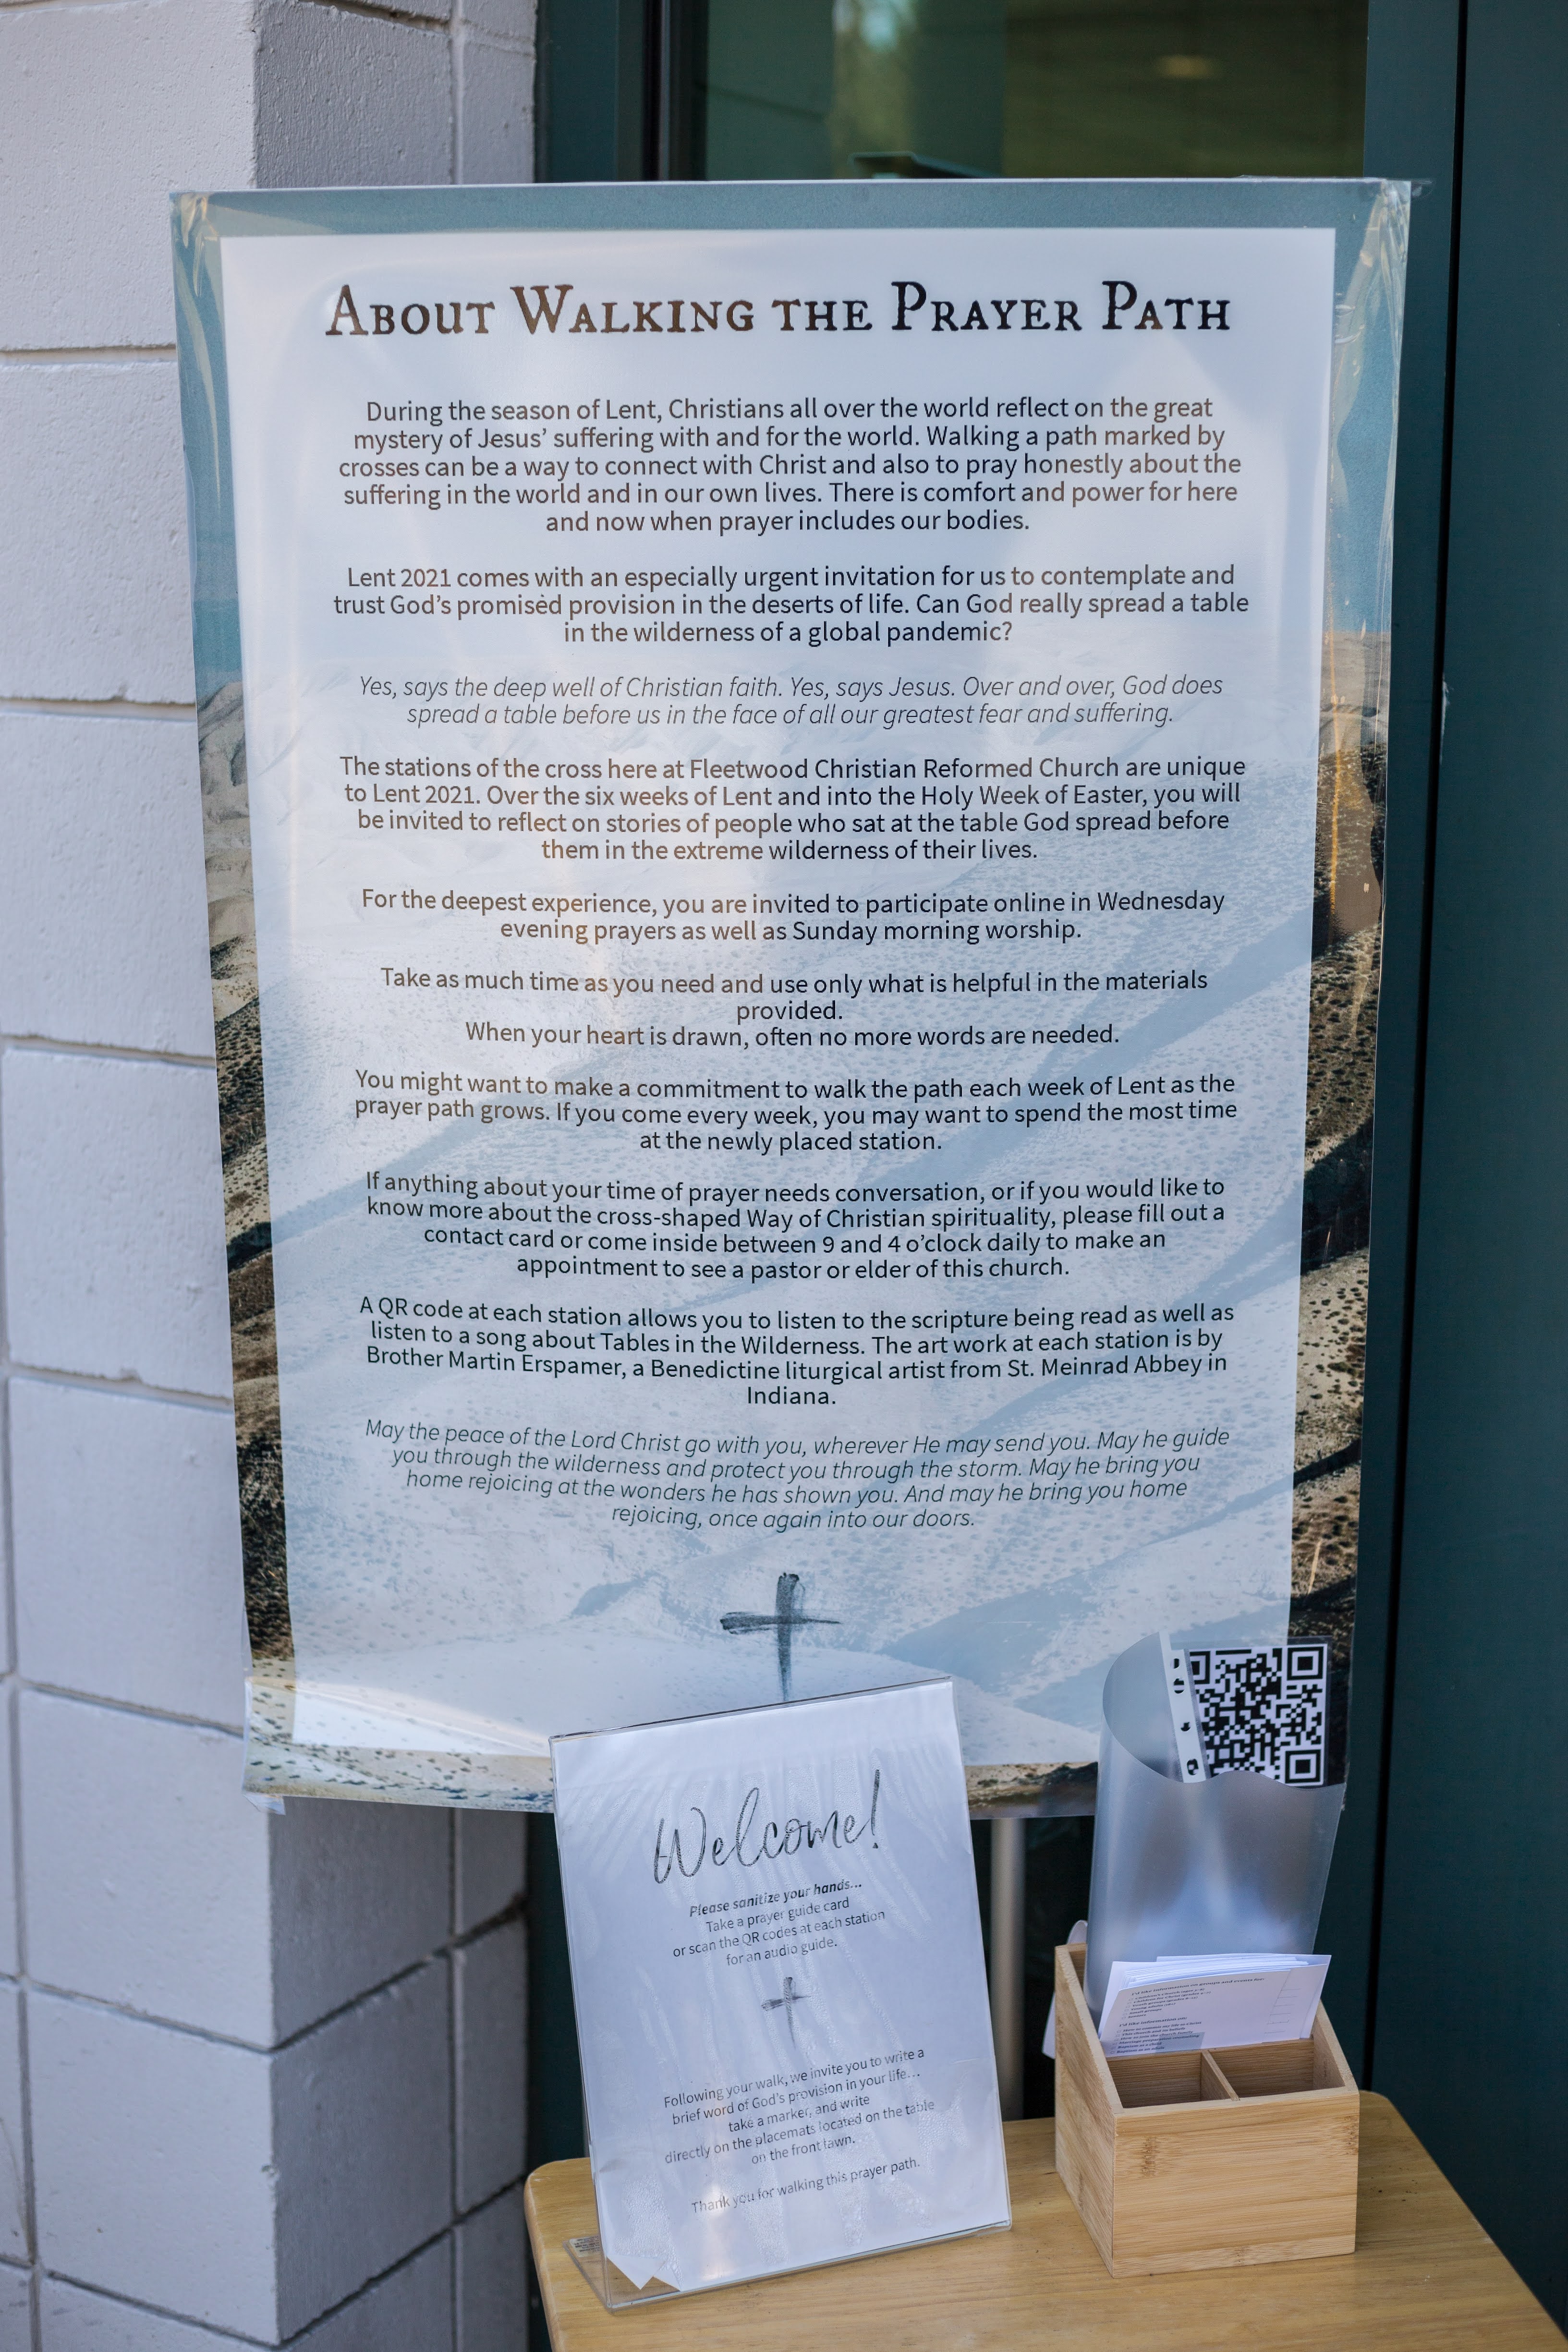 About Walking the Prayer Path
During the season of Lent, Christians all over the world reflect on the great
mystery of Jesus’ suffering with and for the world. Walking a path marked by
crosses can be a way to connect with Christ and also to pray honestly about the
suffering in the world and in our own lives. There is comfort and power for here
and now when prayer includes our bodies.
Lent 2021 comes with an especially urgent invitation for us to contemplate and
trust God’s promised provision in the deserts of life. Can God really spread a table
in the wilderness of a global pandemic?
Yes, says the deep well of Christian faith. Yes, says Jesus. Over and over, God does
spread a table before us in the face of all our greatest fear and suffering.
The stations of the cross here at Fleetwood Christian Reformed Church are unique
to Lent 2021. Over the six weeks of Lent and into the Holy Week of Easter, you will
be invited to reflect on stories of people who sat at the table God spread before
them in the extreme wilderness of their lives.
For the deepest experience, you are invited to participate online in Wednesday
evening prayers as well as Sunday morning worship.
Take as much time as you need and use only what is helpful in the materials
provided.
When your heart is drawn, often no more words are needed.
You might want to make a commitment to walk the path each week of Lent as the
prayer path grows. If you come every week, you may want to spend the most time
at the newly placed station.
If anything about your time of prayer needs conversation, or if you would like to
know more about the cross-shaped Way of Christian spirituality, please fill out a
contact card or come inside between 9 and 4 o’clock daily to make an
appointment to see a pastor or elder of this church.
A QR code at each station allows you to listen to the scripture being read as well as
listen to a song about Tables in the Wilderness. The art work at each station is by
Brother Martin Erspamer, a Benedictine liturgical artist from St. Meinrad Abbey in
Indiana.
May the peace of the Lord Christ go with you, wherever He may send you. May he guide
you through the wilderness and protect you through the storm. May he bring you
home rejoicing at the wonders he has shown you. And may he bring you home
rejoicing, once again into our doors.
Welcome!
Please sanitize your hands...
Take a prayer guide card
or scan the QR codes at each station
for an audio guide.
Following your walk, we invite you to write a
brief word of God’s provision in your life...
take a marker, and write
directly on the placemats located on the table
on the front lawn.
Thank you for walking this prayer path.